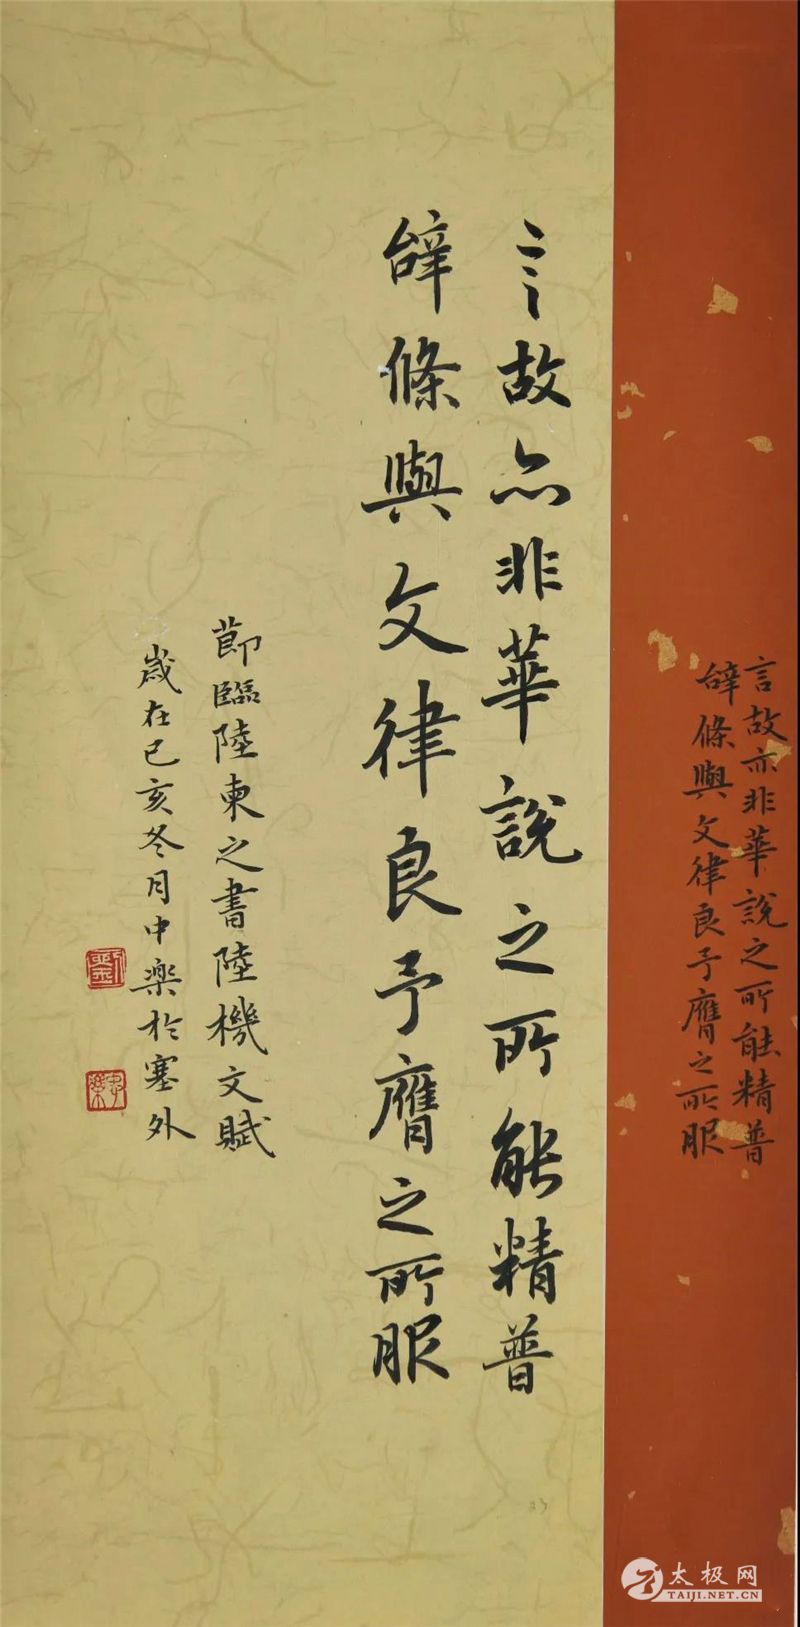 言故亦非華說之所能精普
辝條與文律良予膺之所服
言故亦非華說之所能精普
辝條與文律良予膺之所服
莭臨陸柬之書陸機文賦
歲在己亥冬月中楽於塞外
劉
太极网
TAIJI.NET.CN